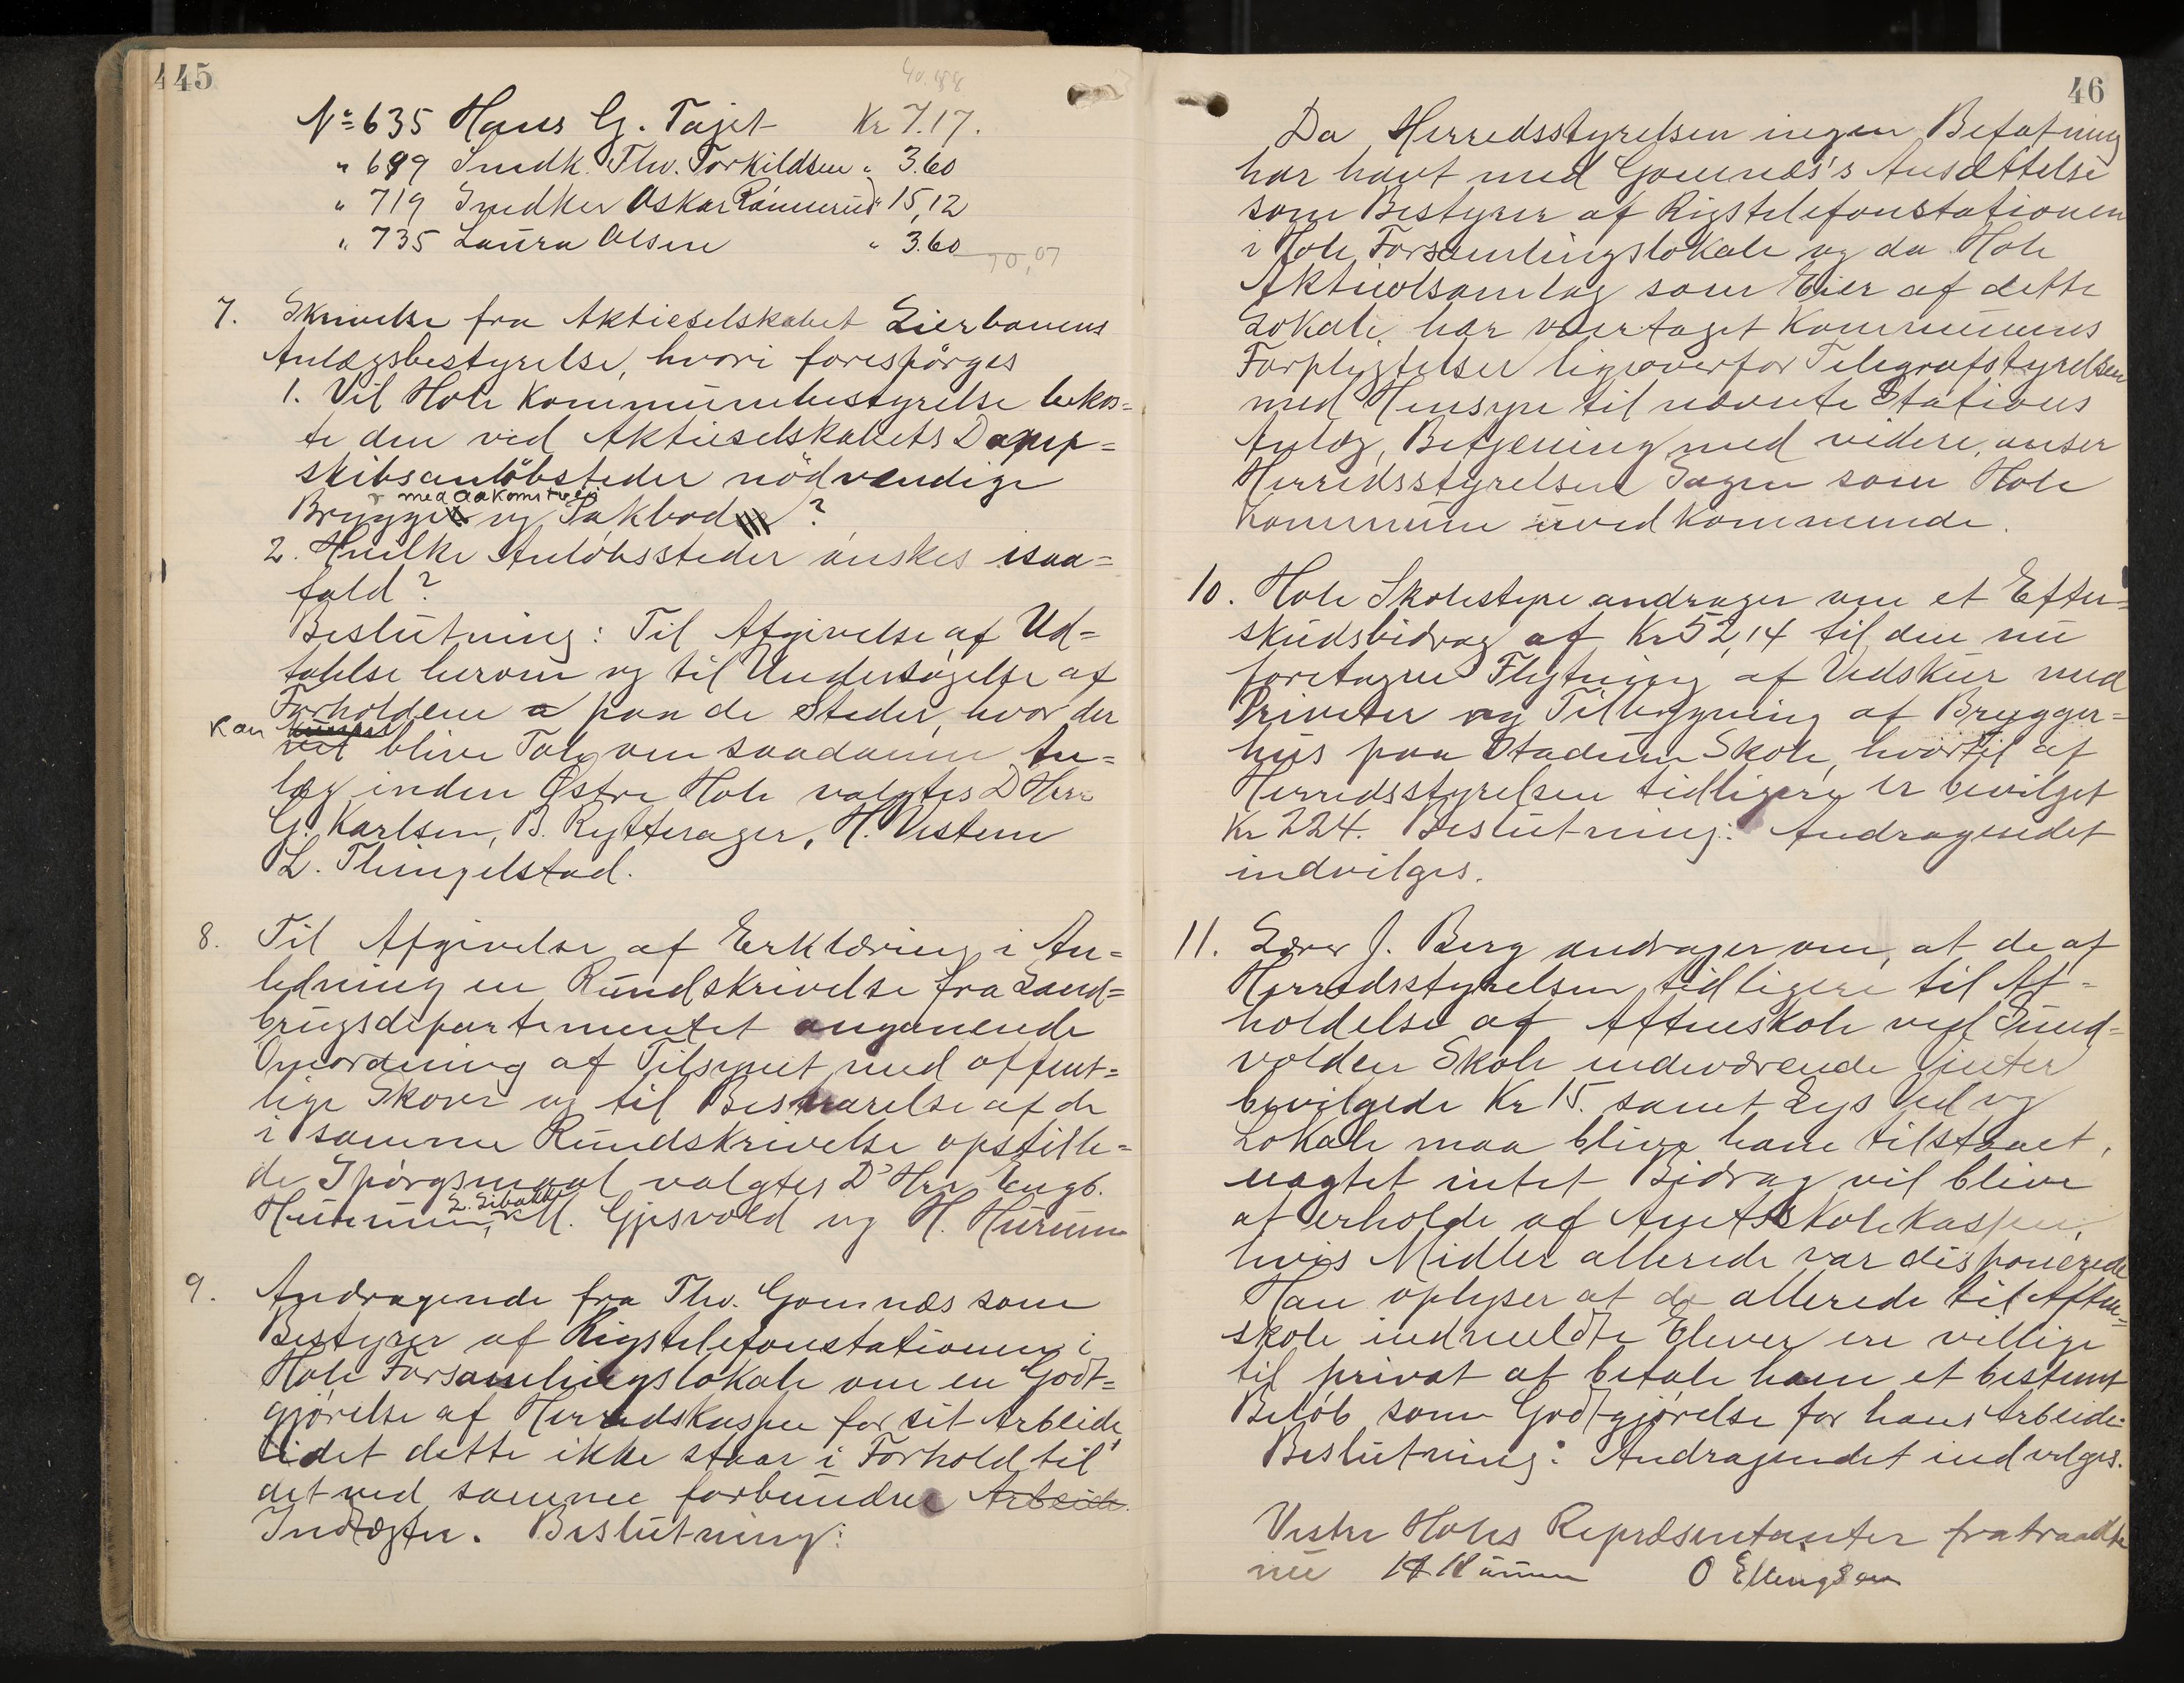 45
40.88
No 635 Hans G. Tajet Kr 7.17.
" 699 Smdk. Thv. Torkildsen " 3.60
" 719 Smedker Oskar Rönnerud " 15,12
" 735 Laura Olsen " 3.60
70,07
7. Skrivelse fra Aktieselskabet Lierbanens
Anlægsbestyrelse, hvori forespörges
1. Vil Hole Kommunebestyrelse bekos=
te den ved Aktieselskabets Damp=
skibsanlöbsteder nödvendige
med Adkomstvei
Brygge og Pakbod ?
2. Hvilke Anlöbssteder ónskes isaa=
fald?
Beslutning: Til Afgivelse af Ud=
talelse herom og til Undersögelse af
Forholdene paa de Steder, hvor der
kan
blive Tale om saadanne An=
læg inden Østre Hole valgtes D'Herr
G. Karlsen, B. Rytterager, H. Vestern
L. Thingelstad.
8. Til Afgivelse af Erklæring i An=
ledning en Rundskrivelse fra Land=
brugsdepartementet angaaende
Omordning af Tilsynet med offent=
lige Skove og til Besvarelse af de
i samme Rundskrivelse opstille=
de Spörgsmaal valgtes D'Hrr Engb.
L. Libakk
M. Gjesvold og H. Hurum
9. Andragende fra Thv. Gomnæs som
Bestyrer af Rigstelefonstationen i
Hole Forsamlingslokale om en Godt=
gjörelse af Herredskassen for sit Arbeide
idet dette ikke staar i Forhold til
det ved samme forbundne Arbeide
Indtægter. Beslutning:
46
Da Herredsstyrelsen ingen Befatning
har havt med Gomnæs's Ansættelse
som Bestyrer af Rigstelefonstationen
i Hole Forsamlingslokale og da Hole
Aktieølsamlag som Eier af dette
Lokale har overtaget Kommunens
Forpligtelser ligeoverfor Telegrafstyrelsen
med Hensyn til nævnte Stations
Anlæg, Betjening med videre, anser
Herredsstyrelsen Sagen som Hole
Kommune uvedkommende.
10. Hole Skolestyre andrager om et Efter=
skudsbidrag af Kr 52,14 til den nu
foretagne Flytning af Vedskur med
Priveter og Tilbygning af Brygger=
hus paa Stadum Skole, hvortil af
Herredsstyrelsen tidligere er bevilget
Kr 224. Beslutning: Andragendet
indvilges.
11. Lærer J. Berg andrager om, at de af
Herredsstyrelsen tidligere til Af=
holdelse af Aftenskole ved Sund=
volden Skole indeværende Vinter
bevilgede Kr 15. samt Lys Ved og
Lokale maa blive ham tilstaaet,
uagtet intet Bidrag vil blive
at erholde af Amtsskolekassen,
hvis Midler allerede var disponerede
Han oplyser at de allerede til Aften=
skole indmeldte Elever ere villige
til privat at betale ham et bestemt
Belöb som Godtgjörelse for hans Arbeide.
Beslutning: Andragendet indvilges.
Vestre Holes Repræsentanter fratraadte
nu O Ellingsen